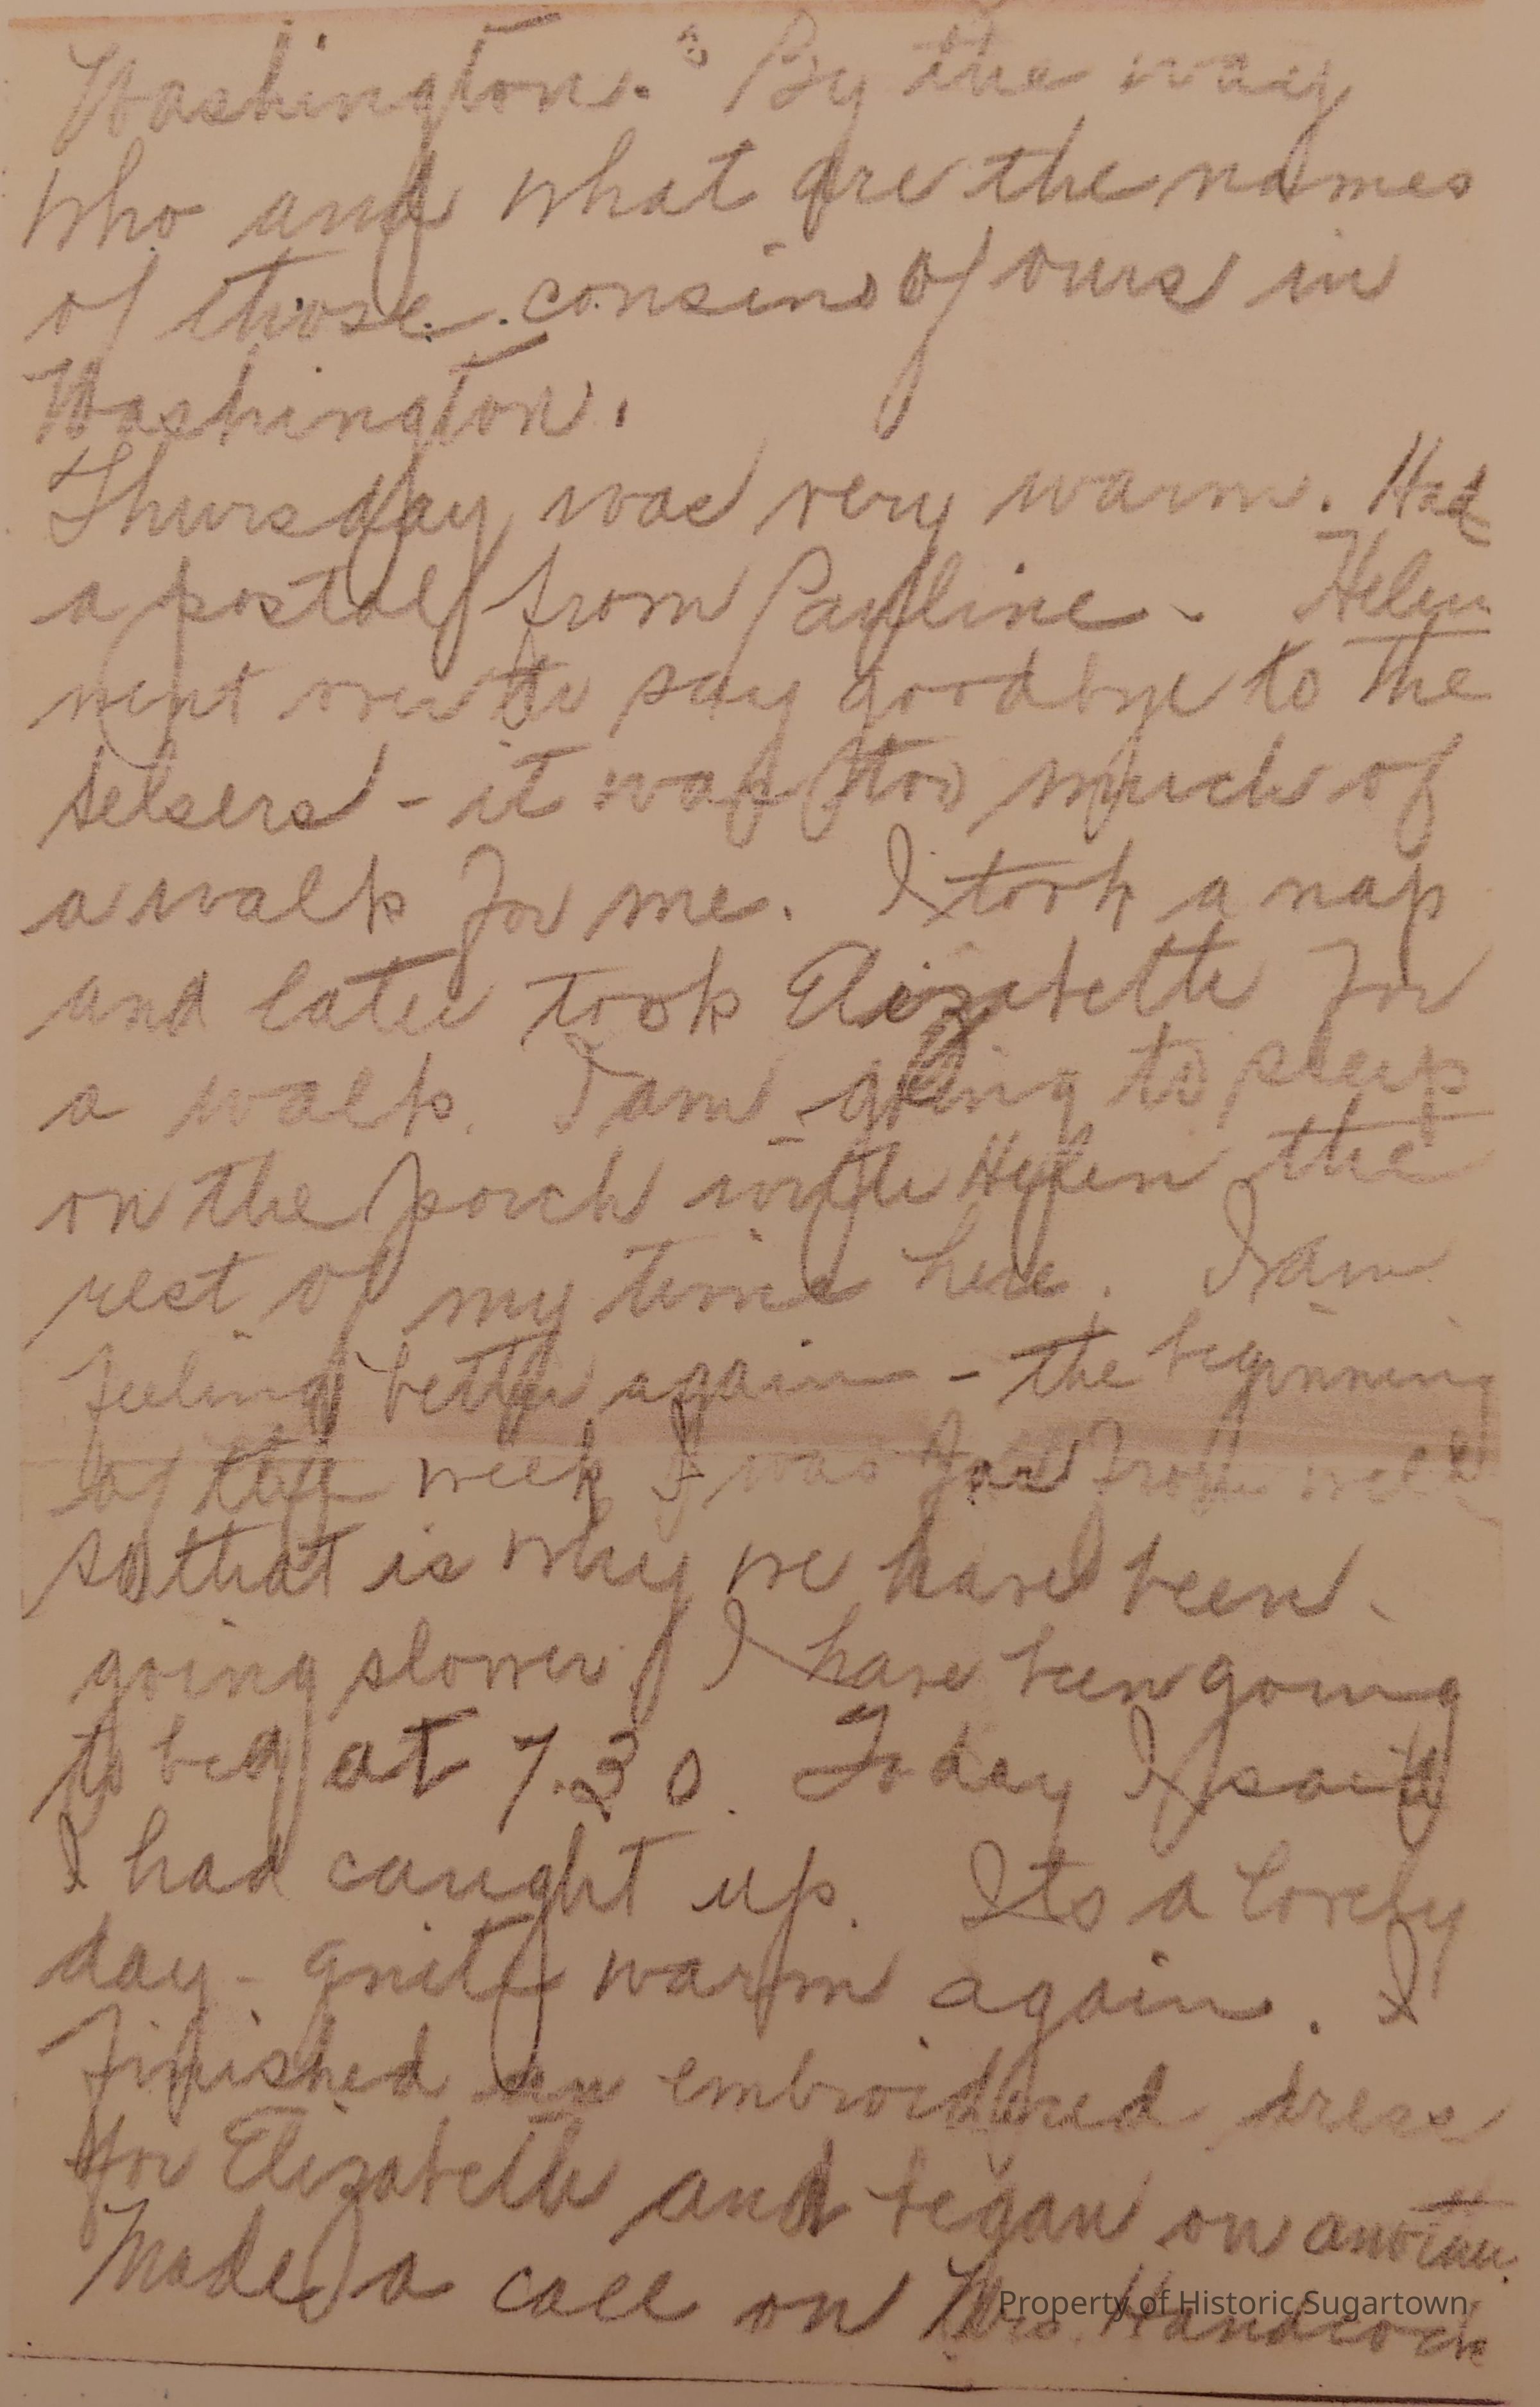 Washington. By the way
who and what are the names
of those cousins of ours in
Washington.
Thursday was very warm. Had
a postal from Pauline - Helen
went over to say goodbye to the
Selsers - it was too much of
a walk for me. I took a nap
and later took Elizabeth for
a walk. I am going to sleep
on the porch with Helen the
rest of my time here. I am
feeling better again - the beginning
of the week I was far from well
so that is why we have been
going slower. I have been going
to bed at 7.30. Today I said
I had caught up. Its a lovely
day - quite warm again. I
finished an embroidered dress
for Elizabeth and began on another.
Made a call on Mrs. Handcock
Property of Historic Sugartown